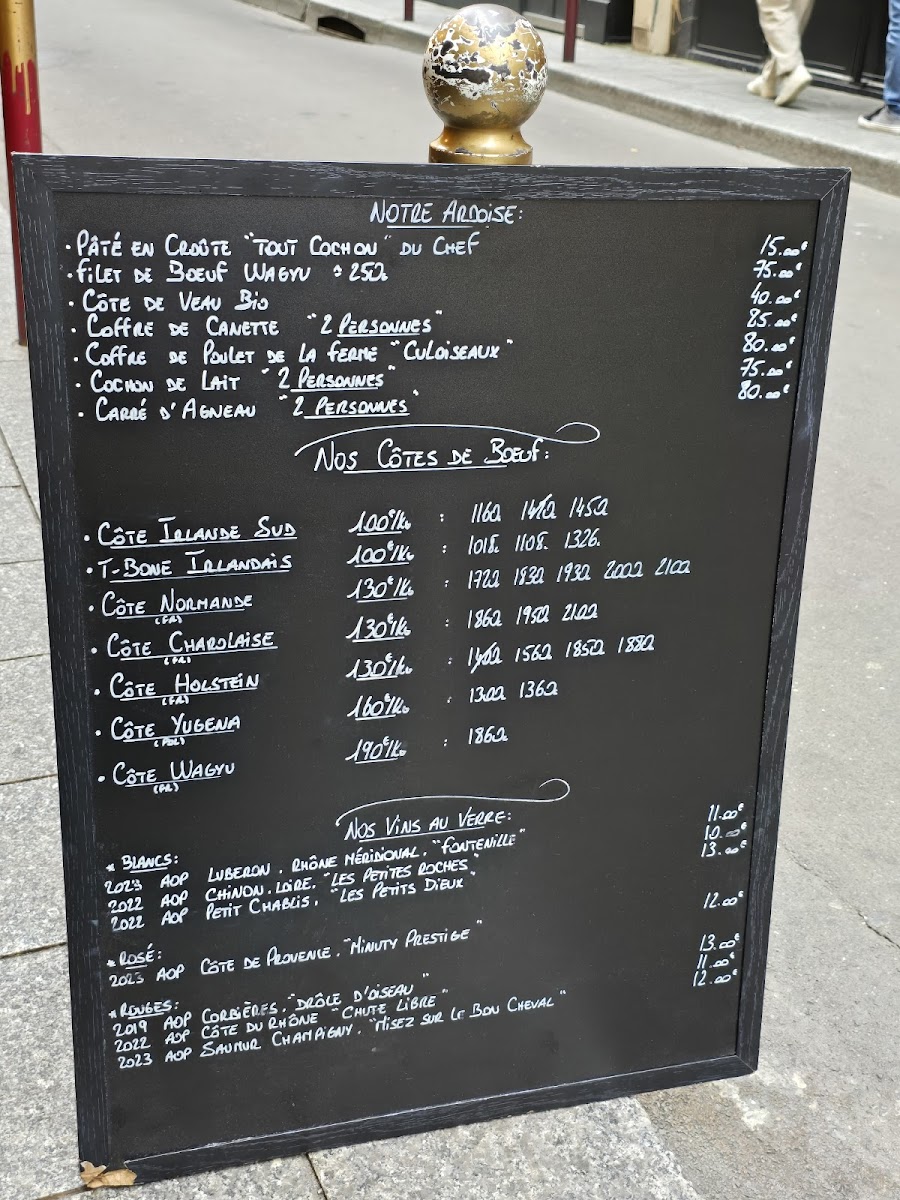 NOTRE ARDOISE:
· PÂTÉ EN CROÛTE "TOUT COCHON" DU CHEF 15.00€
· FILET DE BOEUF WAGYU 250. 75.00€
· CÔTE DE VEAU BIO 40.00€
· COFFRE DE CANETTE "2 PERSONNES" 85.00€
· COFFRE DE POULET DE LA FERME "CULOISEAUX" 80.00€
· COCHON DE LAIT "2 PERSONNES" 75.00€
· CARRÉ D'AGNEAU "2 PERSONNES" 80.00€
NOS CÔTES DE BOEUF:
· CÔTE IRLANDE SUD 100€/KG : 1160 1450
· T-BONE IRLANDAIS 100€/KG : 1018. 1108. 1326.
· CÔTE NORMANDE 130€/KG : 1720 1830 1930 2000 2100
(FR)
· CÔTE CHAROLAISE 130€/KG : 1860 1950 2100
(FR)
· CÔTE HOLSTEIN 130€/KG : 1560 1850 1880
(FR)
· CÔTE YUGENA 160€/KG : 1300 1360
(POL)
· CÔTE WAGYU 190€/KG : 1860
(FR)
NOS VINS AU VERRE:
* BLANCS:
2023 AOP LUBERON. RHÔNE MÉRIDIONAL. "FONTENILLE" 11.00€
2022 AOP CHINON. LOIRE. "LES PETITES ROCHES" 10.00€
2022 AOP PETIT CHABLIS. "LES PETITS DIEUX" 13.00€
* ROSÉ:
2023 AOP CÔTE DE PROVENCE. "MINUTY PRESTIGE" 12.00€
* ROUGES:
2019 AOP CORBIÈRES. "DRÔLE D'OISEAU" 13.00€
2022 AOP CÔTE DU RHÔNE "CHUTE LIBRE" 11.00€
2023 AOP SAUMUR CHAMPIGNY. "MISEZ SUR LE BON CHEVAL" 12.00€